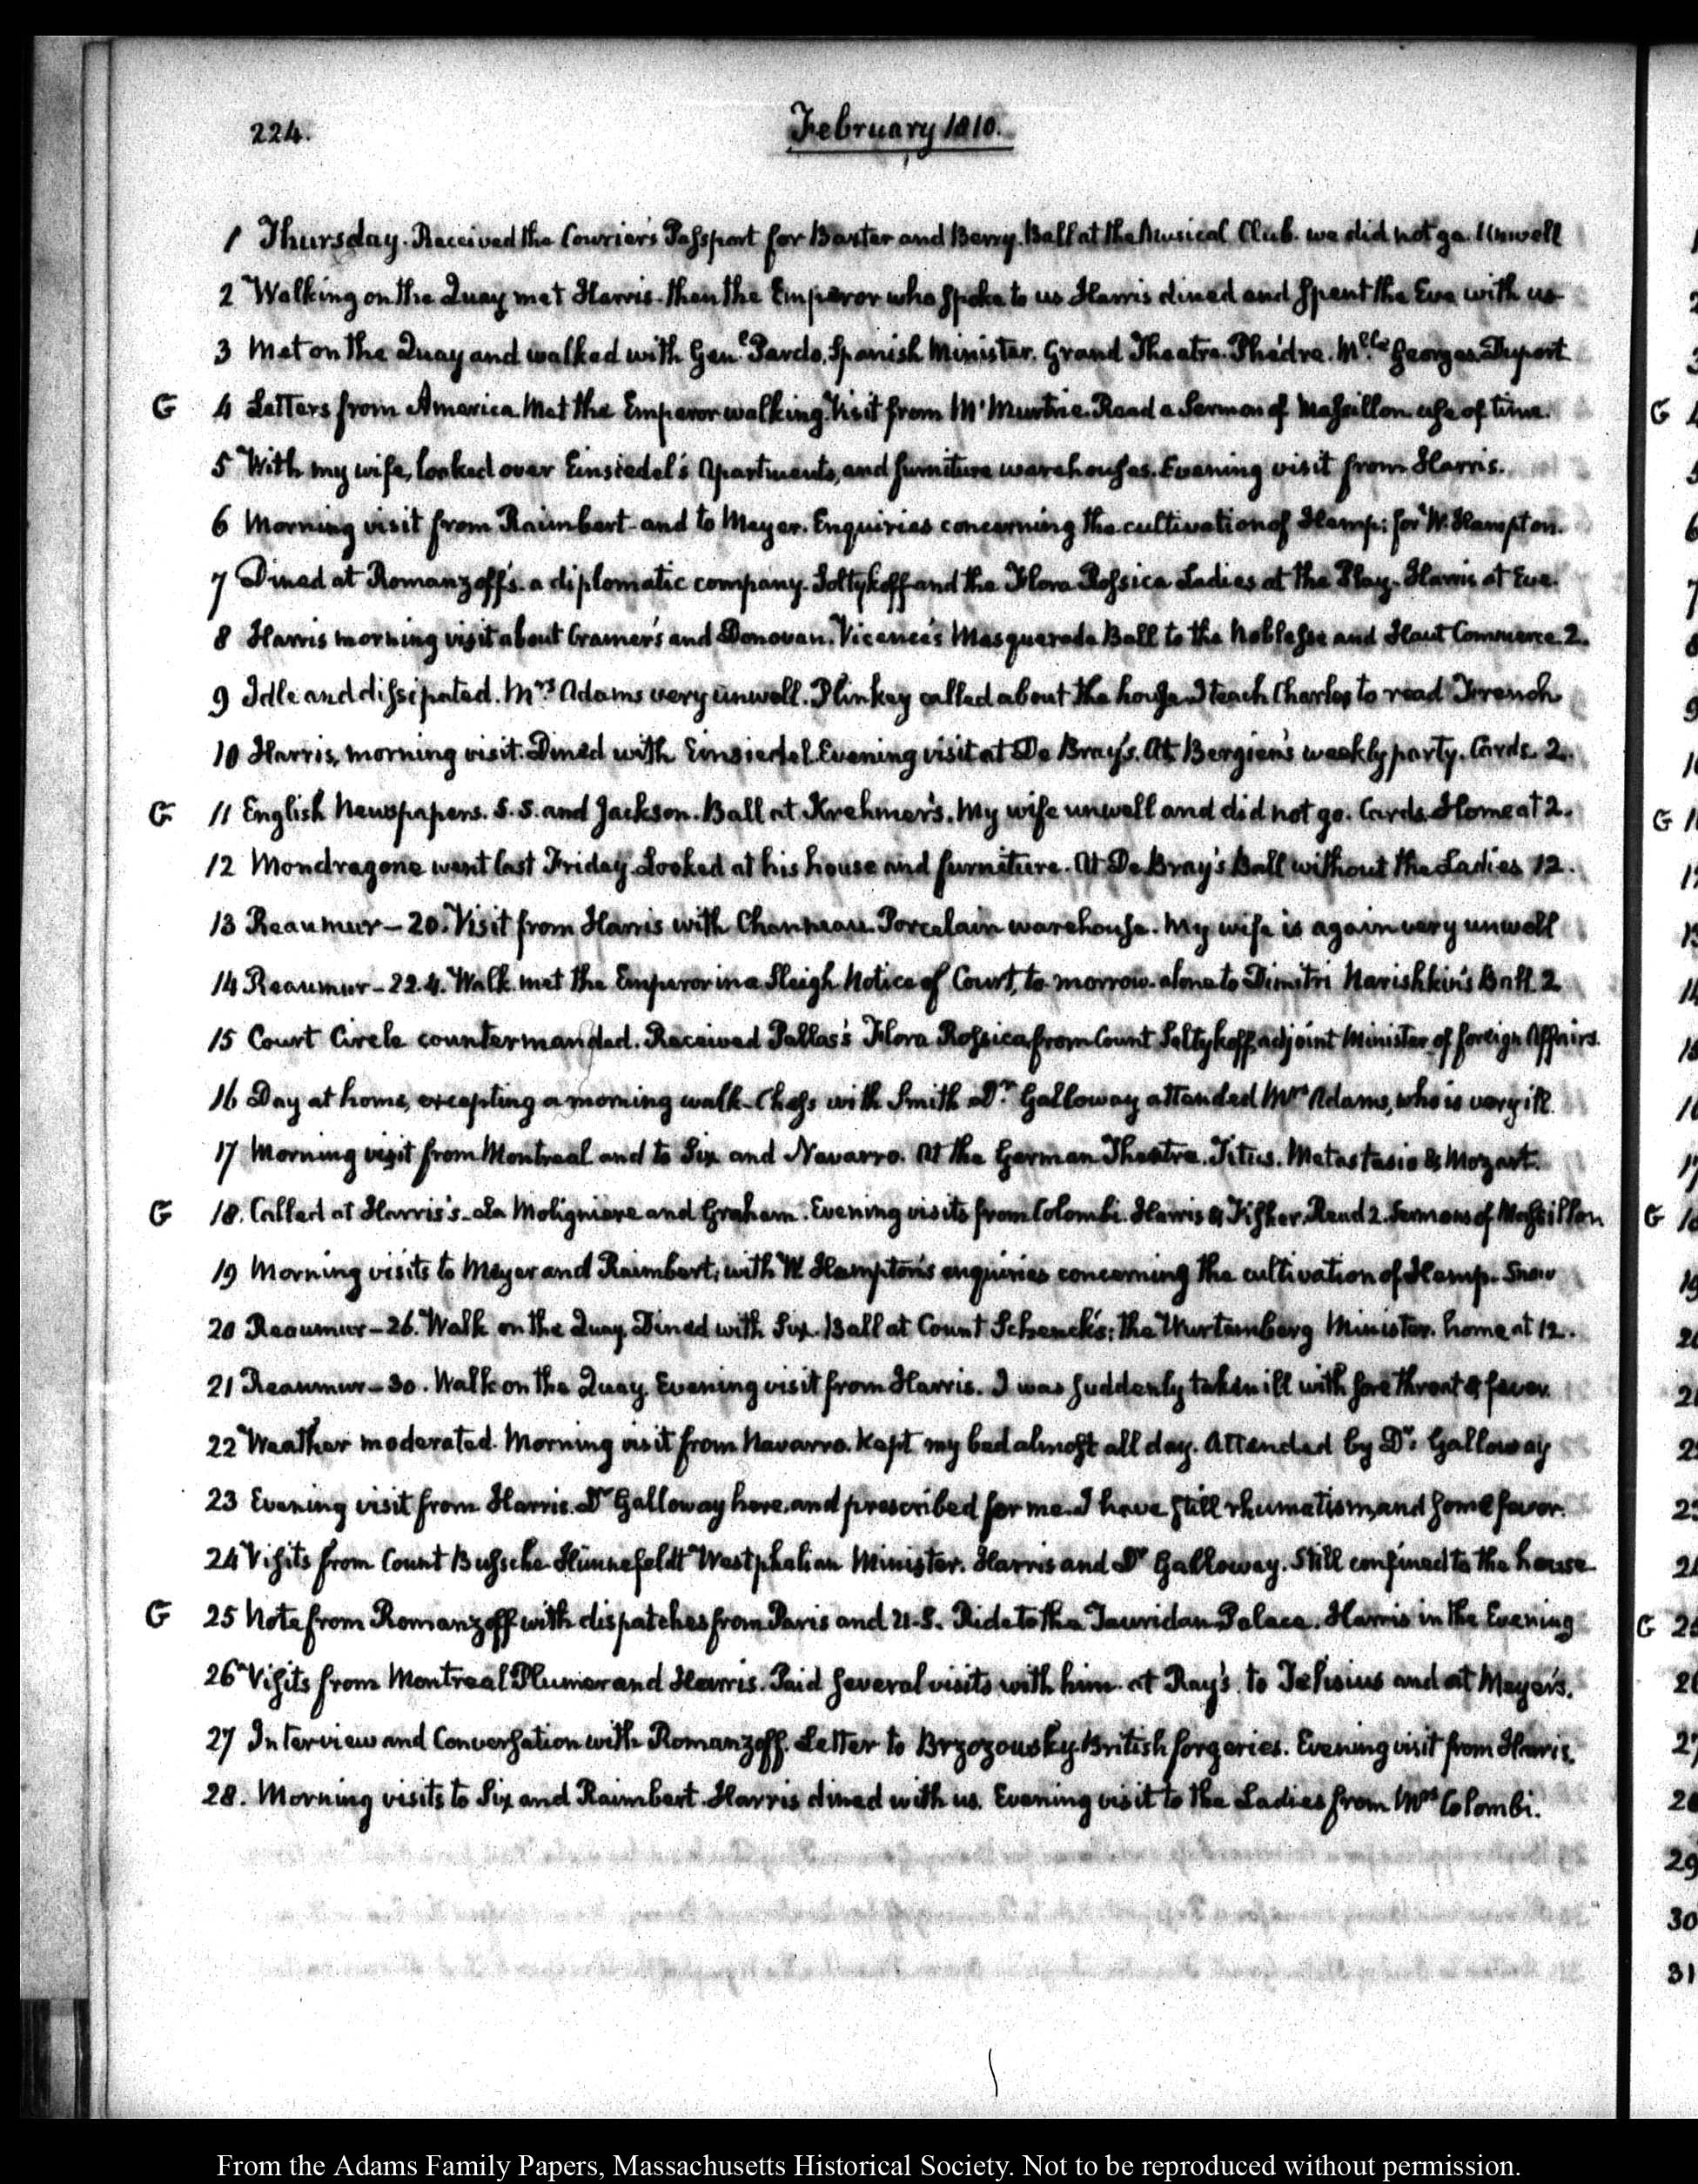 224.
February 1810.
1 Thursday. Received the Courier's Passport for Baxter and Berry. Ball at the Musical Club. we did not go. Unwell
2 Walking on the Quay met Harris. then the Emperor who spoke to us Harris dined and spent the Eve with us
3 Met on the Quay and walked with Genl. Pardo, Spanish Minister. Grand Theatre. Phèdre. Mlle Georges. Duport
G 4 Letters from America. Met the Emperor walking. Visit from McMurtrie. Read a Sermon of Massillon use of time.
5 With my wife, looked over Einsiedel's Apartments, and furniture warehouses. Evening visit from Harris.
6 Morning visit from Raimbert. and to Meyer. Enquiries concerning the cultivation of Hemp: for W. Hampton.
7 Dined at Romanzoff's. a diplomatic company. Soltykoff and the Flora Rossica Ladies at the Play. Harris at Eve.
8 Harris morning visit about Cramer's and Donovan. Vicence's Masquerade Ball to the Noblesse and Haut Commerce. 2.
9 Idle and dissipated. Mrs Adams very unwell. Plinkey called about the house I teach Charles to read French
10 Harris, morning visit. Dined with Einsiedel. Evening visit at De Bray's. At Bergien's weekly party. Cards. 2.
G 11 English Newspapers. S. S. and Jackson. Ball at Krehmer's. My wife unwell and did not go. Cards. Home at 2.
12 Mondragone went last Friday. Looked at his house and furniture. At De Bray's Ball without the Ladies 12.
13 Reaumur – 20. Visit from Harris with Porcelain warehouse. My wife is again very unwell
14 Reaumur – 22.4. Walk. met the Emperor in a Sleigh Notice of Court, to-morrow. alone to Dimitri Narishkin's Ball. 2
15 Court Circle countermanded. Received Pallas's Flora Rossica from Count Soltykoff, adjoint Minister of foreign Affairs.
16 Day at home, excepting a morning walk. Chess with Smith Dr. Galloway attended Mrs Adams, who is very ill.
17 Morning visit from Montreal and to Six and Navarro. At the German Theatre. Titus. Metastasio & Mozart.
G 18. Called at Harris's. La Moligniere and Graham. Evening visits from Colombi. Harris & Fisher. Read 2. Sermons of Massillon
19 Morning visits to Meyer and Raimbert, with W Hampton's enquiries concerning the cultivation of Hemp. Snow
20 Reaumur – 26. Walk on the Quay. Dined with Six. Ball at Count Schenck's: the Wurtemberg Minister. home at 12.
21 Reaumur – 30. Walk on the Quay. Evening visit from Harris. I was suddenly taken ill with sore throat & fever.
22 Weather moderated. Morning visit from Navarro. Kept my bed almost all day. Attended by Dr. Galloway
23 Evening visit from Harris. Dr Galloway here, and prescribed for me. I have still rhumatism, and some fever.
24 Visits from Count Bussche Hünnefeldt Westphalian Minister. Harris and Dr Galloway. Still confined to the house
G 25 Note from Romanzoff with dispatches from Paris and U.S. Ride to the Tauridan Palace. Harris in the Evening
26 Visits from Montreal Plumer and Harris. Paid several visits with him. at Ray's. to Jelisius and at Meyer's.
27 Interview and Conversation with Romanzoff. Letter to Brzozousky. British forgeries. Evening visit from Harris.
28. Morning visits to Six and Raimbert. Harris dined with us. Evening visit to the Ladies from Mrs Colombi.
G
G
G
G
29
30
31
From the Adams Family Papers, Massachusetts Historical Society. Not to be reproduced without permission.